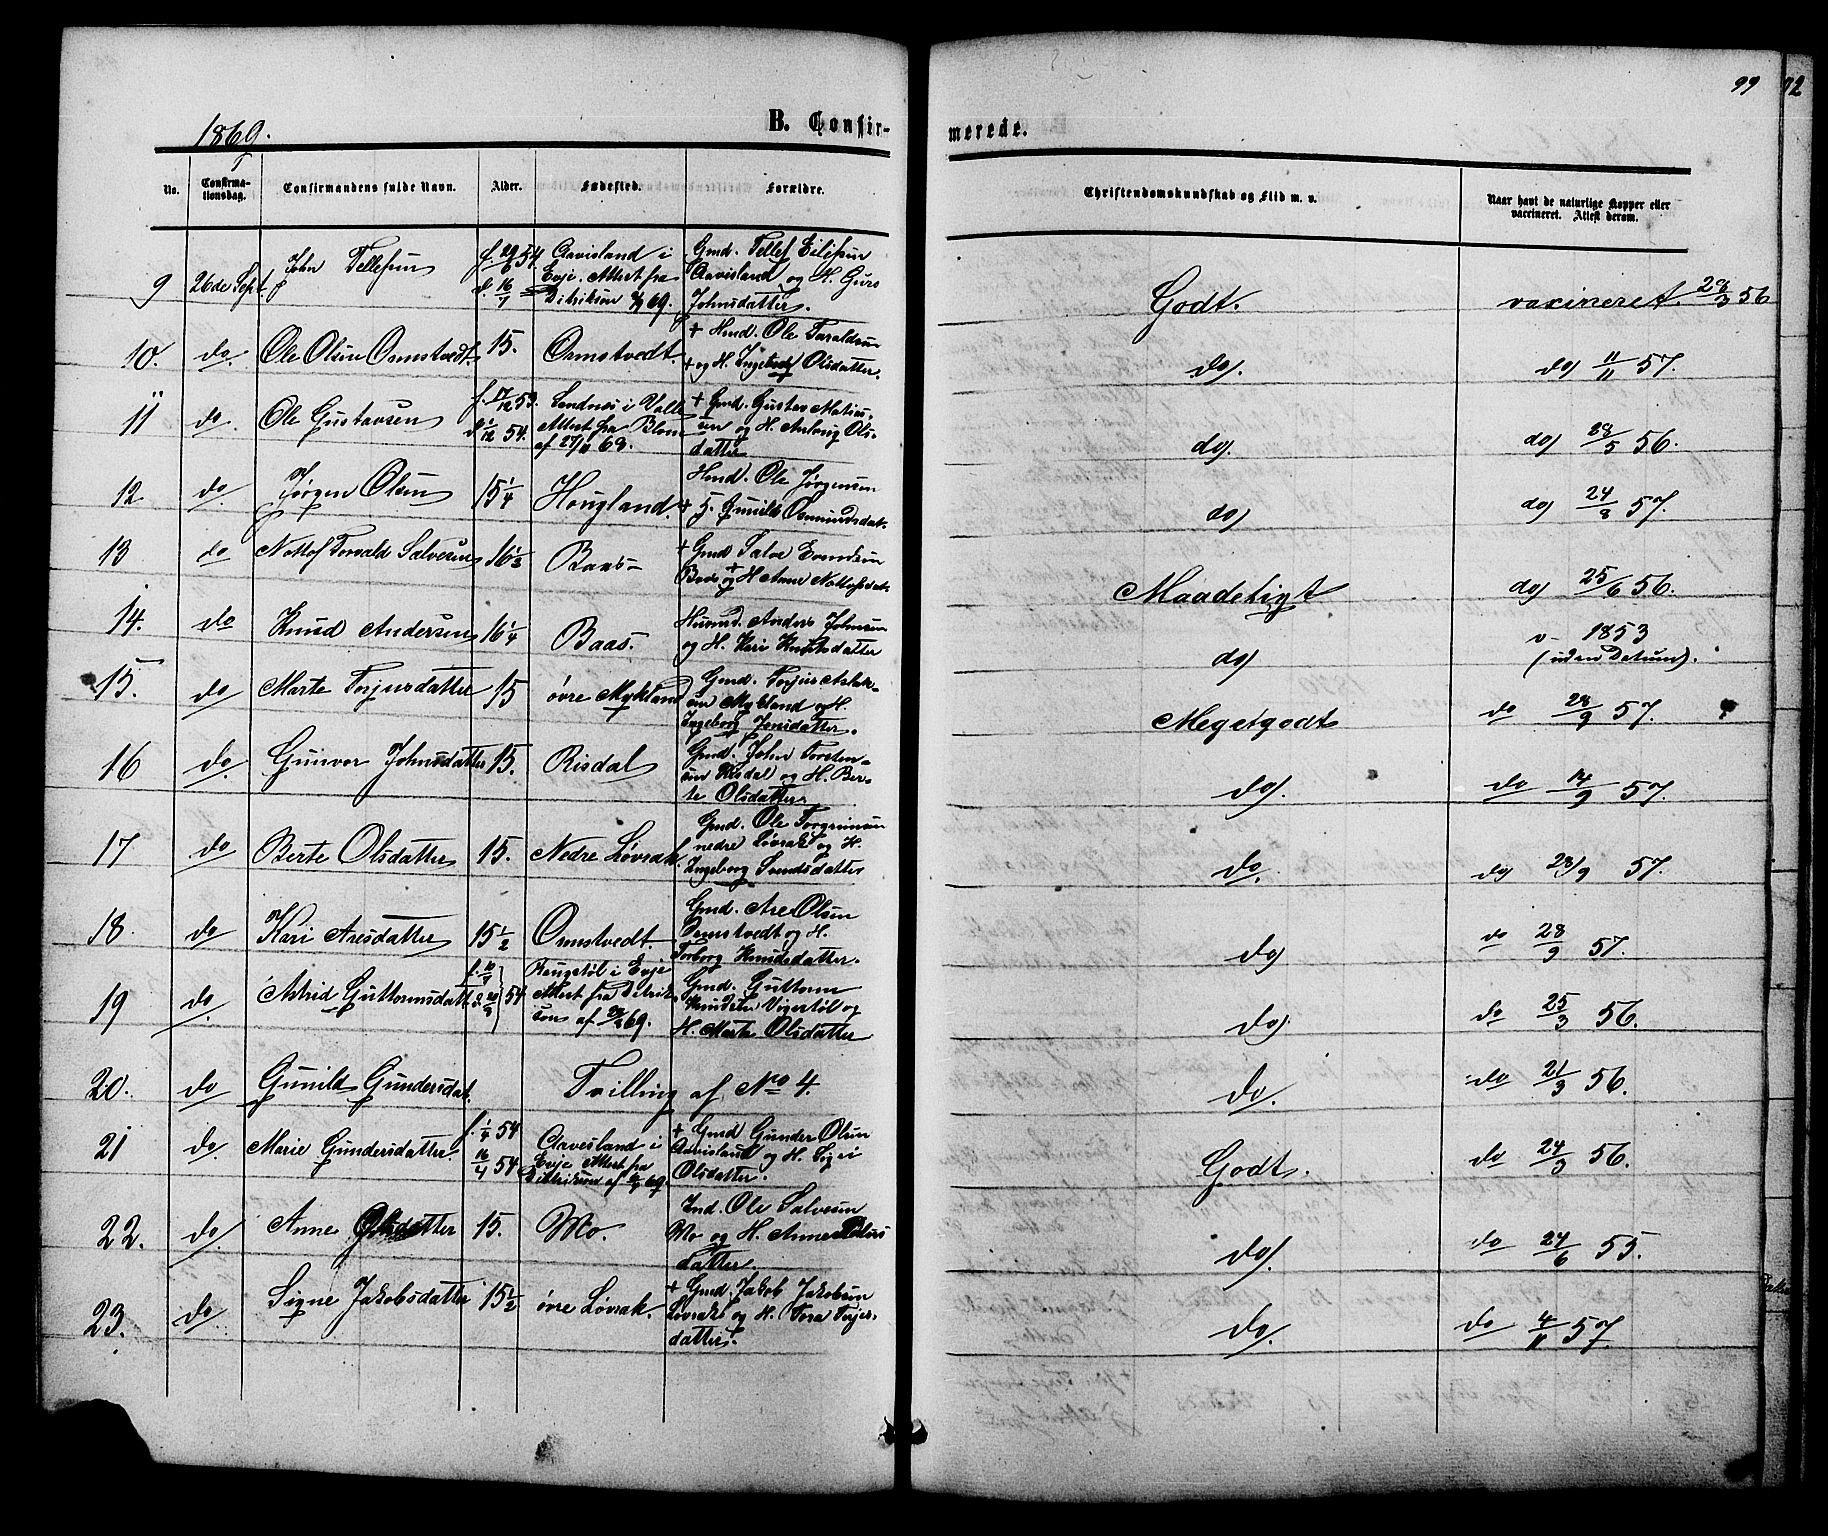 1869.
B. Confir-
merede.
99
No.
Confirma-
tionsdag.
Confirmandens fulde Navn.
Alder.
Fødested.
Forældre.
Christendomskundskab og Flid m. v.
Naar havt de naturlige Kopper eller
vaccineret. Attest derom.
9 26de Sept. John Tellefsen f. 29/6 54 d. 16/7 Aavisland i
Evje. Attest fra
Ditrikson 69.
Gmd. Tellef Eilifsen
Aavisland og H. Guro
Johnsdatter.
Godt. vaxineret 28/3 56
10. do. Ole Olsen Osmstvedt 15. Osmstvedt.
+ Hmd. Ole Taraldsen
+ og H. Ingeborg Olsdatter.
do. do 11/11 57.
11 do. Ole Gustavsen f. 17/12 53. d. 1/12 54.
Sandnæs i Valle
Attest fra Blom
af 27/9 68.
+ Gmd. Gustav Matias-
sen og H. Anlaug Ols-
datter
do. do 28/5 56.
12 do. Jørgen Olsen 15 1/4 Hougland.
Hmd. Ole Jørgensen
+ F. Gunild Osmundsdat.
do do 24/8 57.
13 do Nottof Torvald Salvesen 16 1/2 Baas
+ Gmd Salve Evendsen
Baas og H Anne Nottofsdat.
Maadeligt do 25/6 56.
14. do Knud Andersen 16 1/4 Baas.
Huusmd. Anders Johnsen
og H. Kari Knudsdatter
do v. 1853
(uden Datum).
15. do Marte Torjusdatter 15 øvre Mykland
Gmd. Torjus Aslak-
sen Mykland og H.
Ingeborg Jensdatter.
Megetgodt do 28/9 57.
16 do. Gunvor Johnsdatter 15. Risdal
Gmd. John Torsten-
sen Risdal og H. Ber-
te Olsdatter
do. do 14/9 57.
17 do Berte Olsdatter 15. Nedre Løvrak.
Gmd. Ole Torgrimsen
nedre Løvrak og H.
Ingeborg Svendsdatter
do. do 23/9 57.
18. do Kari Aresdatter 15 1/2 Osmstvedt.
Gmd. Are Olsen
Osmstvedt og H.
Torborg Knudsdatter.
do do 28/9 57.
19 do Astrid Guttormsdatt. 54
Haugstøl i Evje
Attest fra Ditrik-
son af 69.
Gmd. Guttorm
Knudsen Vigestøl og
H. Marte Olsdatter
do. do 25/3 56.
20. do Gunild Gundersdat. Tvilling af No 4.
do. do 21/3 56.
21 do. Marie Gundersdatter. f. 1/4 54 16/4 54
Aavesland i
Evje Attest fra
Ditrikson af 69.
+ Gmd Gunder Olsen
Aavisland og H. Sigri
Olsdatter.
Godt. do 24/3 56.
22. do. Anne Olsdatter 15. Mo.
Ind. Ole Salvesen
Mo og H. Anne
datter.
do. do 24/6 55.
23. do Signe Jakobsdatter 15 1/2 øvre Løvrak.
+ Gmd. Jakob Jakobsen
Løvrak og H. Tora Torjes-
datter.
do. do 4/11 57.